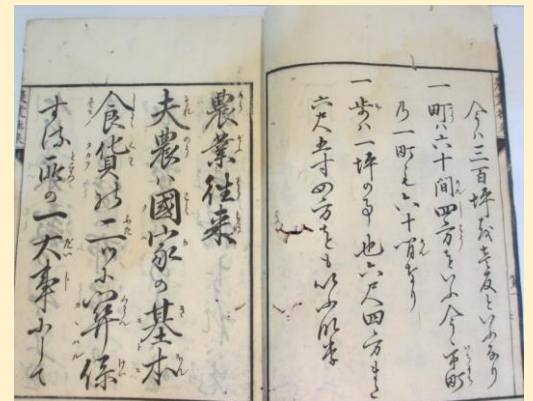 今ハ三百坪を壱反といふなり
一町ハ六十間四方をいふ今の市町
乃一町も六十間なり
一歩ハ一坪の事也六尺四方また
六尺五寸四方をもいふ
農業往来
夫農ハ國家の基本
食貨の二つに関係
する所の一大事にして